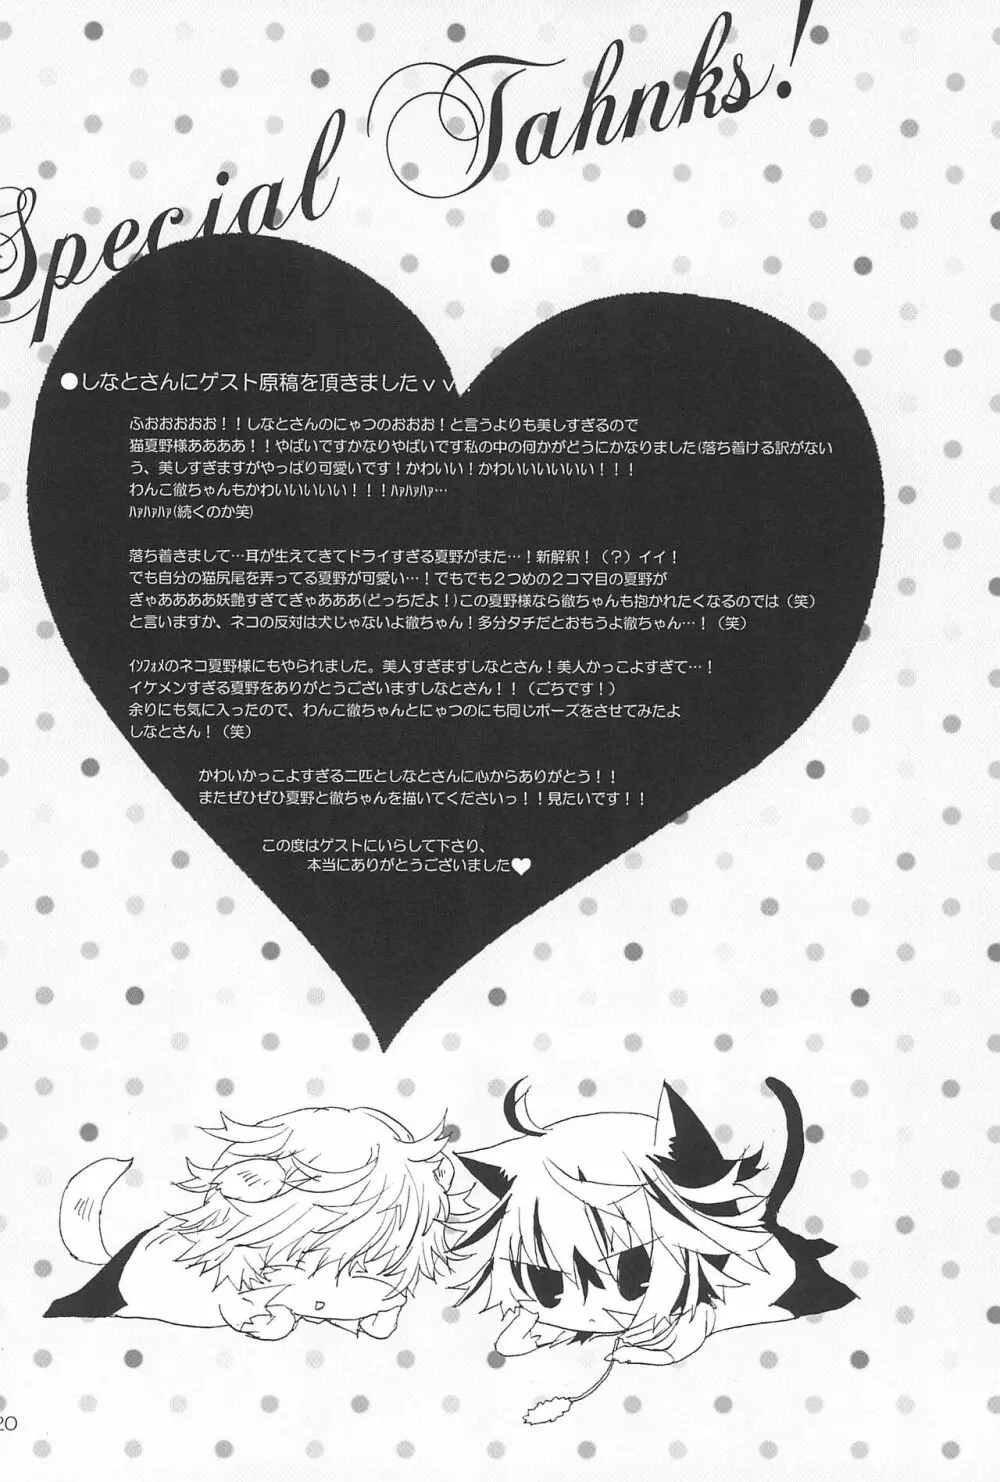 Special Tahnks!
●しなとさんにゲスト原稿を頂きましたｖｖ！
ふおおおおお！！しなとさんのにゃつのおおお！と言うよりも美しすぎるので
猫夏野様ああああ！！やばいですかなりやばいです私の中の何かがどうにかなりました(落ち着ける訳がない
う、美しすぎますがやっぱり可愛いです！かわいい！かわいいいいいい！！！
わんこ徹ちゃんもかわいいいいい！！！ﾊｧﾊｧﾊｧ…
ﾊｧﾊｧﾊｧ(続くのか笑)
落ち着きまして…耳が生えてきてドライすぎる夏野がまた…！新解釈！（？）イイ！
でも自分の猫尻尾を弄ってる夏野が可愛い…！でもでも２つめの２コマ目の夏野が
ぎゃああああ妖艶すぎてぎゃあああ(どっちだよ！)この夏野様なら徹ちゃんも抱かれたくなるのでは（笑）
と言いますか、ネコの反対は犬じゃないよ徹ちゃん！多分タチだとおもうよ徹ちゃん…！（笑）
ｲﾝﾌｫﾒのネコ夏野様にもやられました。美人すぎますしなとさん！美人かっこよすぎて…！
イケメンすぎる夏野をありがとうございますしなとさん！！（ごちです！）
余りにも気に入ったので、わんこ徹ちゃんとにゃつのにも同じポーズをさせてみたよ
しなとさん！（笑）
かわいかっこよすぎる二匹としなとさんに心からありがとう！！
またぜひぜひ夏野と徹ちゃんを描いてくださいっ！！見たいです！！
この度はゲストにいらして下さり、
本当にありがとうございました♥
20